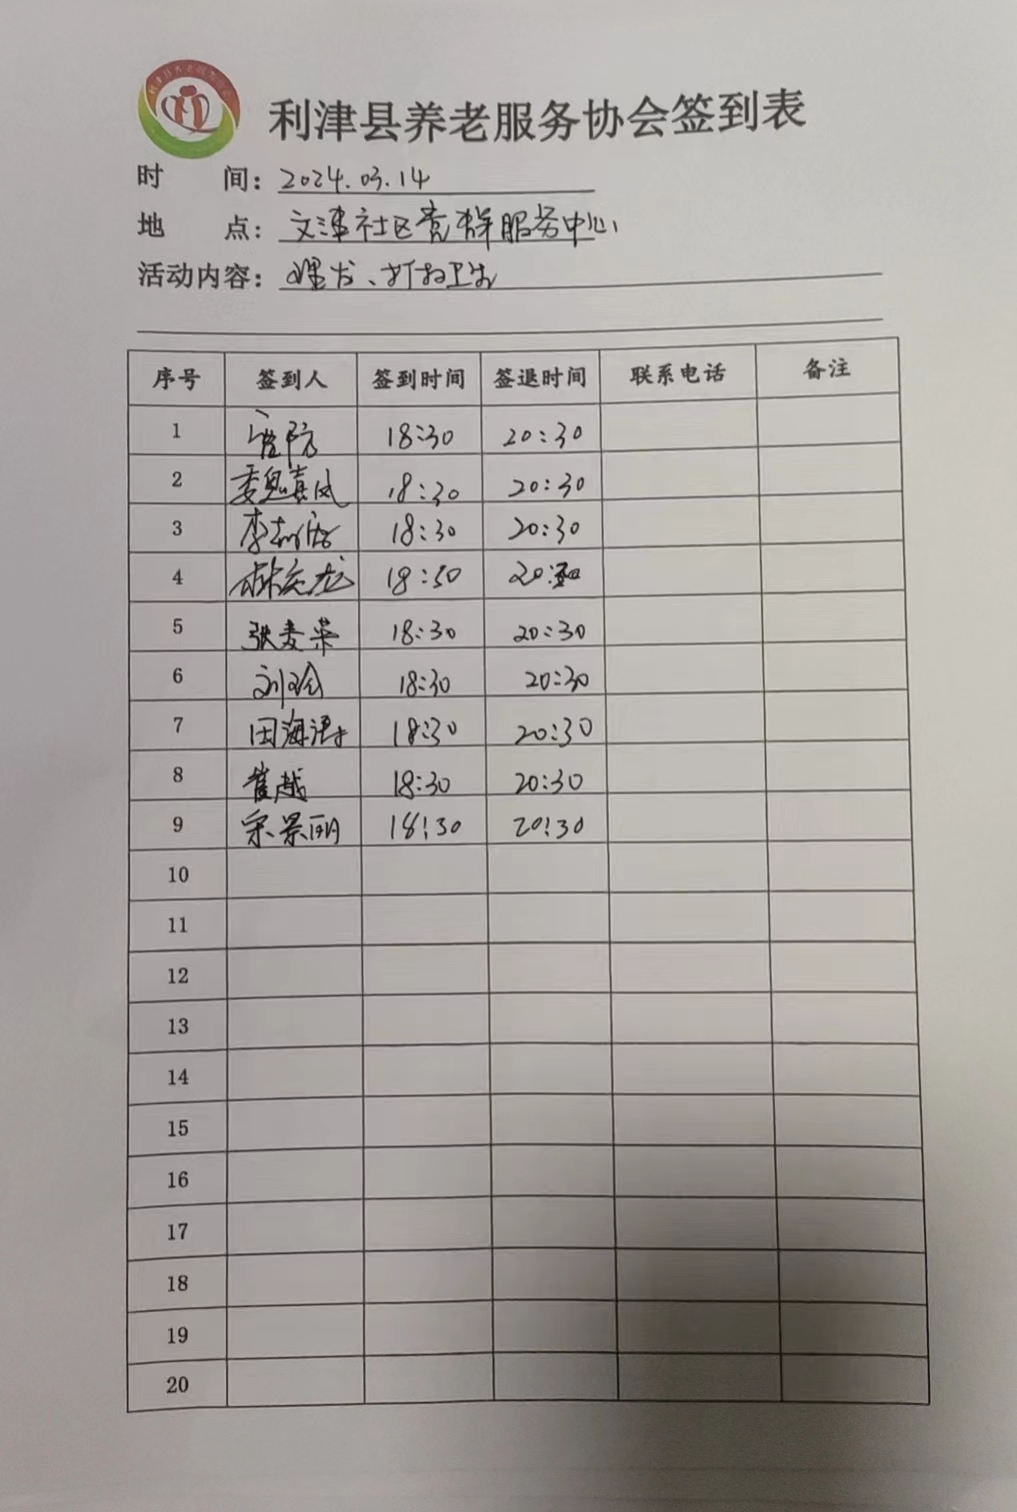 利津县养老服务协会签到表
时 间: 2024.03.14
地 点: 文津社区党群服务中心
活动内容: 理发、打扫卫生
序号 签到人 签到时间 签退时间 联系电话 备注
1 18:30 20:30
2 魏真风 18:30 20:30
3 18:30 20:30
4 林庆龙 18:30 20:30
5 张麦荣 18:30 20:30
6 刘玲 18:30 20:30
7 田海 18:30 20:30
8 崔越 18:30 20:30
9 宋景丽 18:30 20:30
10
11
12
13
14
15
16
17
18
19
20